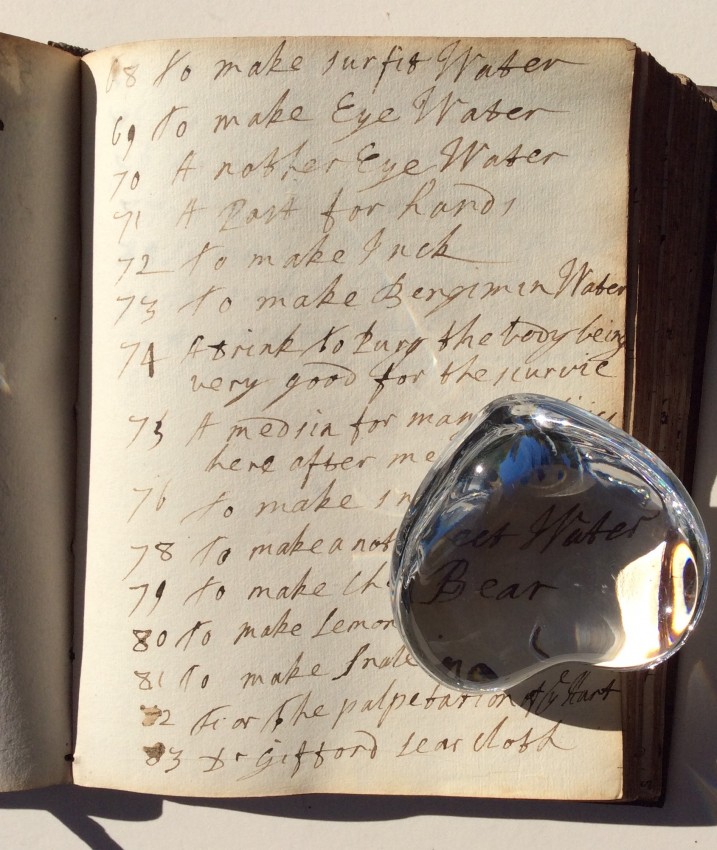 68 To make surfit Water
69 To make Eye Water
70 Another Eye Water
71 A Past for hands
72 To make Inck
73 To make Bengimin Water
74 A drink to Purg the body being
very good for the scurvie
75 A medsin for many
here after me
76 To make
78 To make a not Water
79 To make Bear
80 To make Lemon
81 To make Snale
82 For the palpetation of ye Hart
83 Dr Gifford sear cloth